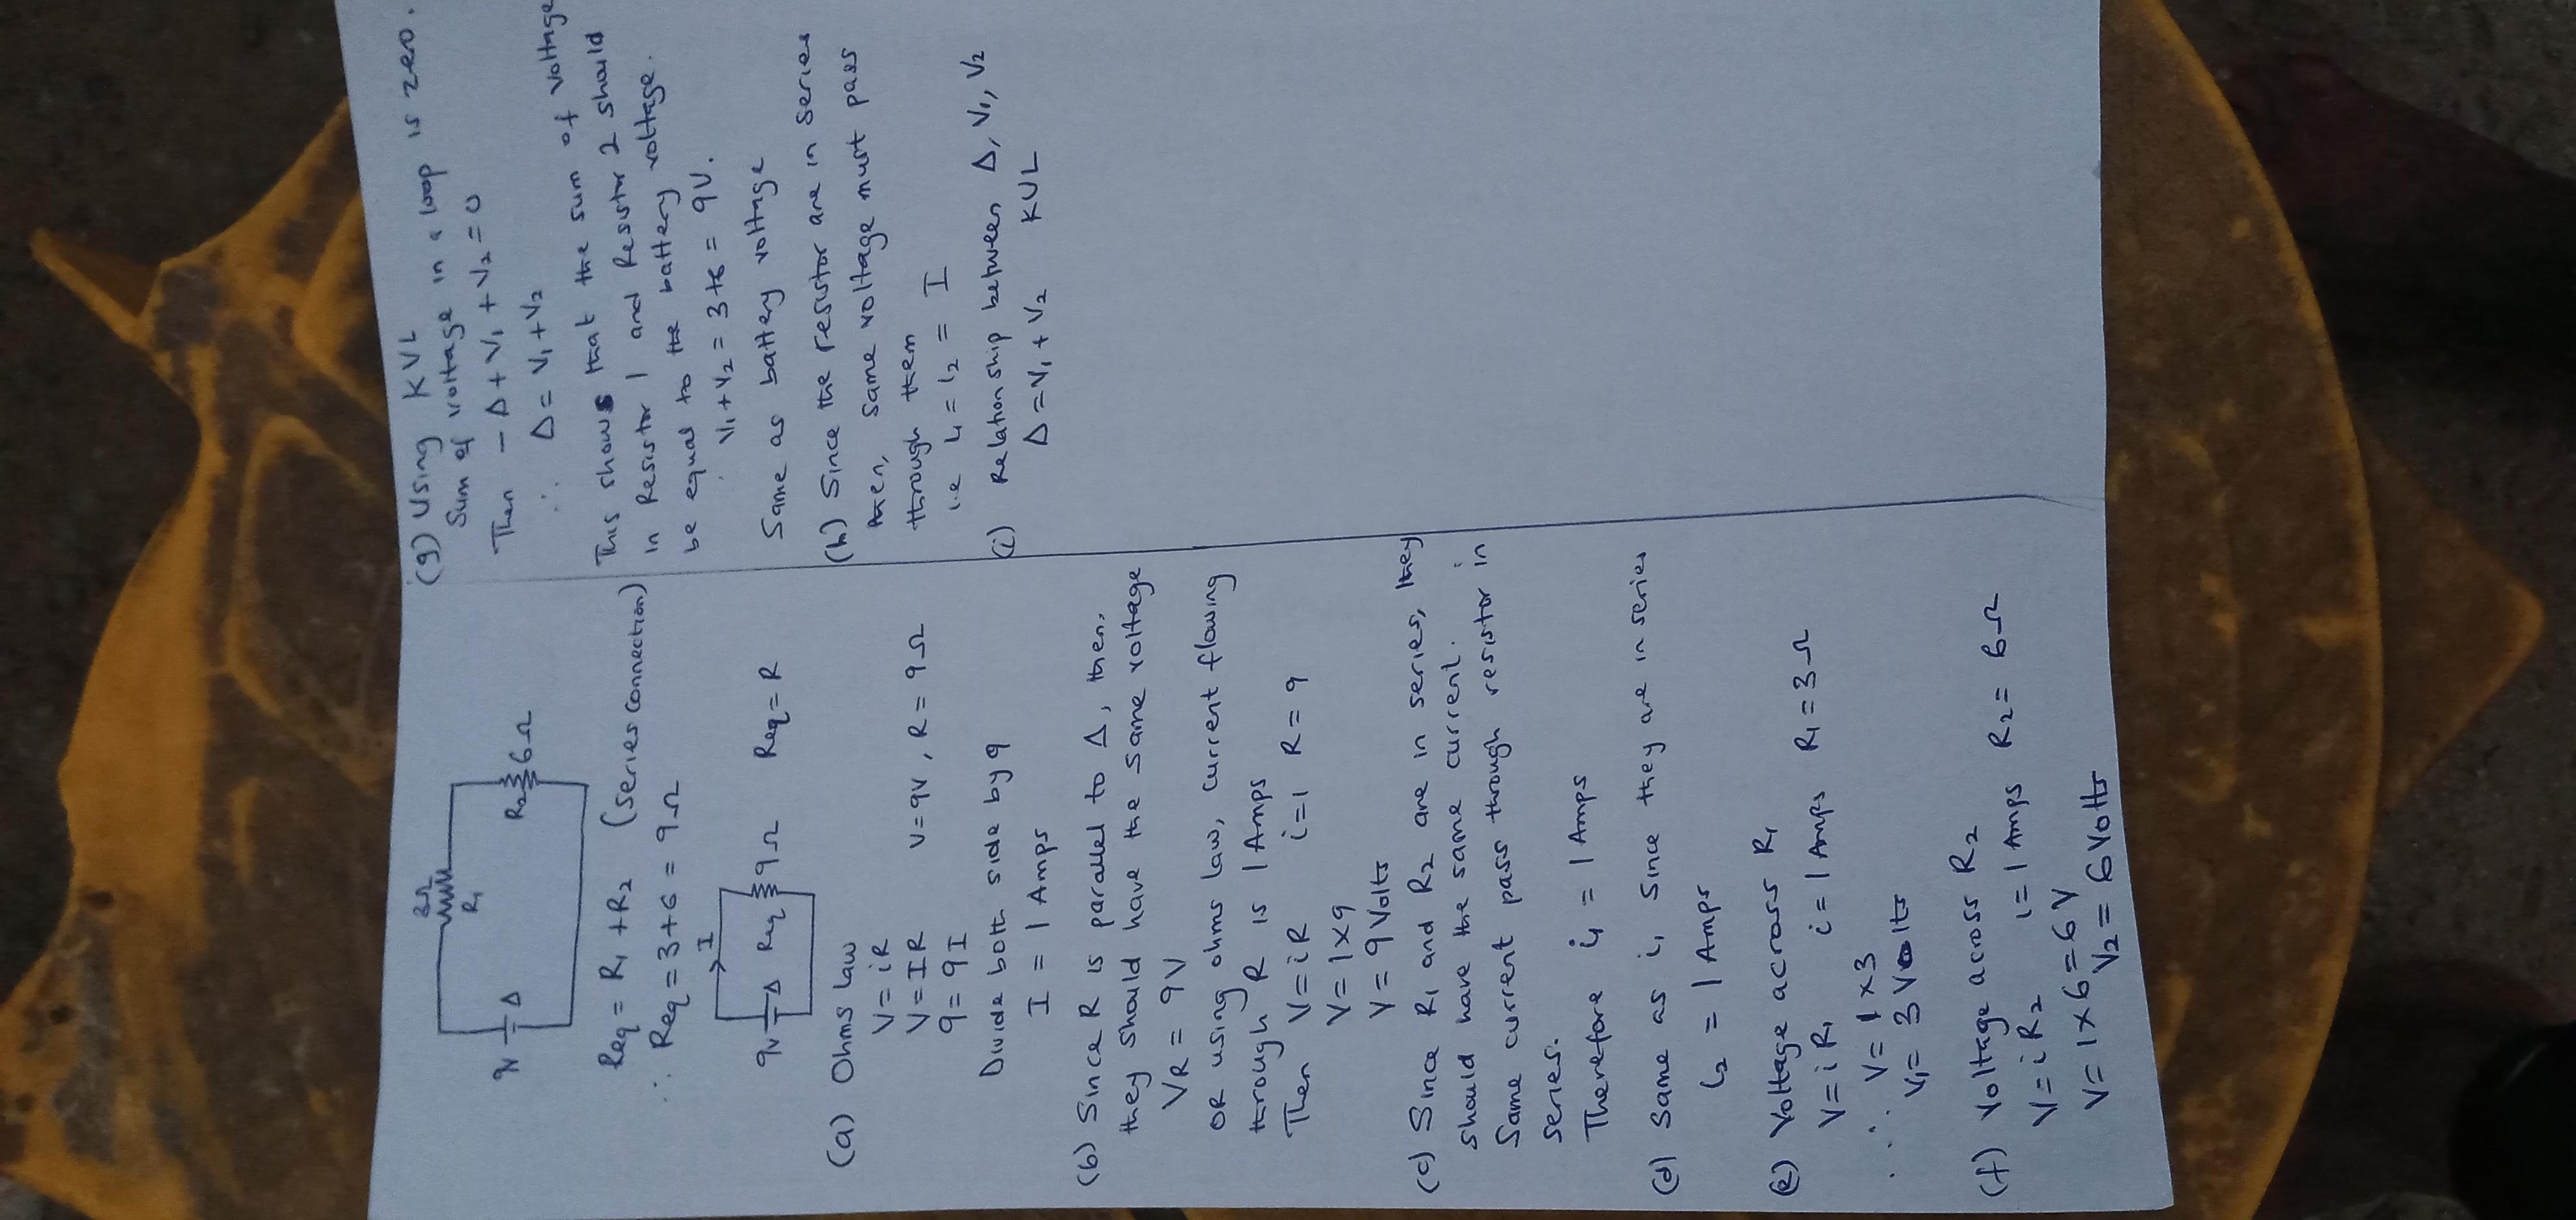 3Ω
R₁
9V
Δ
R₂
6Ω
Req = R₁ + R₂ (series connection)
∴ Req = 3+6 = 9Ω
I
9V
Δ
Req
9Ω
Req = R
(a) Ohms law
V = iR
V = IR V = 9V, R = 9Ω
9 = 9I
Divide both side by 9
I = 1 Amps
(b) Since R is parallel to Δ, then,
they should have the same voltage
VR = 9V
OR using ohms law, current flowing
through R is 1 Amps
Then V = iR i = 1 R = 9
V = 1×9
V = 9 Volts
(c) Since R₁ and R₂ are in series, they
should have the same current.
Same current pass through resistor in
series.
Therefore i₁ = 1 Amps
(d) Same as i, since they are in series
i₂ = 1 Amps
(e) Voltage across R₁
V = iR₁ i = 1 Amps R₁ = 3Ω
∴ V = 1 × 3
V₁ = 3 Volts
(f) Voltage across R₂
V = iR₂ i = 1 Amps R₂ = 6Ω
V = 1×6 = 6V
V₂ = 6 Volts
(g) Using KVL
Sum of voltage in a loop is zero.
Then -Δ + V₁ + V₂ = 0
∴ Δ = V₁ + V₂
This shows that the sum of voltage
in Resistor 1 and Resistor 2 should
be equal to the battery voltage.
∴ V₁ + V₂ = 3+6 = 9V.
Same as battery voltage
(h) Since the resistor are in series
then, same voltage must pass
through them
i.e i₁ = i₂ = I
(i) Relationship between Δ, V₁, V₂
Δ = V₁ + V₂ KVL